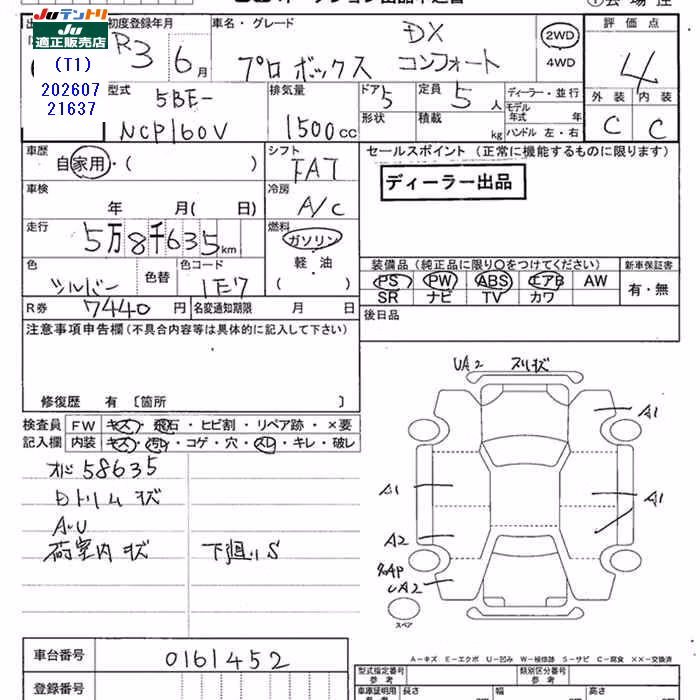 Ju テントリ
JU 適正販売店
(T1)
202607
21637
初度登録年月 車名・グレード 評価点
R3 6月 プロボックス DX コンフォート 2WD 4WD 4
外装 内装
C C
型式 排気量 ドア 定員 ディーラー・並行
5BE- 5 5人 モデル年式 年
NCP160V 1500cc 形状 積載 kg ハンドル 左・右
車歴 シフト セールスポイント (正常に機能するものに限ります)
自家用・( ) FAT ディーラー出品
車検 冷房
年 月( 日) A/C
走行 燃料
5万8千635km ガソリン
色 色替 色コード 軽・油
シルバー 1E7 ( )
装備品 (純正品に限り○をつけてください) 新車保証書
PS PW ABS エアB AW 有・無
SR ナビ TV カワ
R券 7440円 名変通知期限 月 日 後日品
注意事項申告欄(不具合内容等は具体的に記入して下さい)
修復歴 有 〔箇所 〕
検査員 FW キズ・飛石・ヒビ割・リペア跡・×要
記入欄 内装 キズ・汚レ・コゲ・穴・スレ・キレ・破レ
オド58635
Dトリム状
荷室内状 下廻りS
UA2 スリ状
A1
A1
A1
A2
UA2
スペア
A-キズ E-エクボ U-凹み W-補修跡 S-サビ C-腐食 ××-交換済
車台番号 0161452
登録番号
型式指定番号 参考 類別区分番号 参考
車庫証明用 参考 長さ 幅 高さ